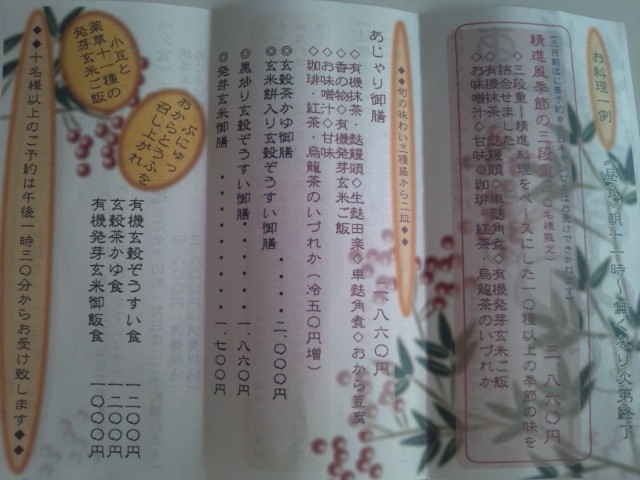 お料理一例
精進風季節の三段重
三、八六〇円
◇三段重―精進料理をベースにした一〇種以上の季節の味を
詰合せました
◇有機抹茶・麩饅頭◇車麩角煮◇有機発芽玄米ご飯
◇お味噌汁◇甘味◇珈琲・紅茶・烏龍茶のいづれか
◆◆旬の味わい三種盛から二皿◆◆
あじゃり御膳
二、八六〇円
◇有機抹茶・麩饅頭◇生麩田楽◇車麩角煮◇おから豆腐
◇香の物◇有機発芽玄米ご飯
◇お味噌汁◇甘味
◇珈琲・紅茶・烏龍茶のいづれか(冷五〇円増)
◎玄穀茶かゆ御膳
◎玄米餅入り玄穀ぞうすい御膳・・・・二、〇〇〇円
◎黒炒り玄穀ぞうすい御膳・・・・・一、八六〇円
◎発芽玄米御膳・・・・・・・・・・一、七〇〇円
ぷにゅっ
おからとうふを
召し上がれ
有機玄穀ぞうすい食 一二〇〇円
玄穀茶かゆ食 一二〇〇円
有機発芽玄米御飯食 一〇〇〇円
小豆と
薬草十一種の
発芽玄米ご飯
◆◆十名様以上のご予約は午後一時三〇分からお受け致します◆◆